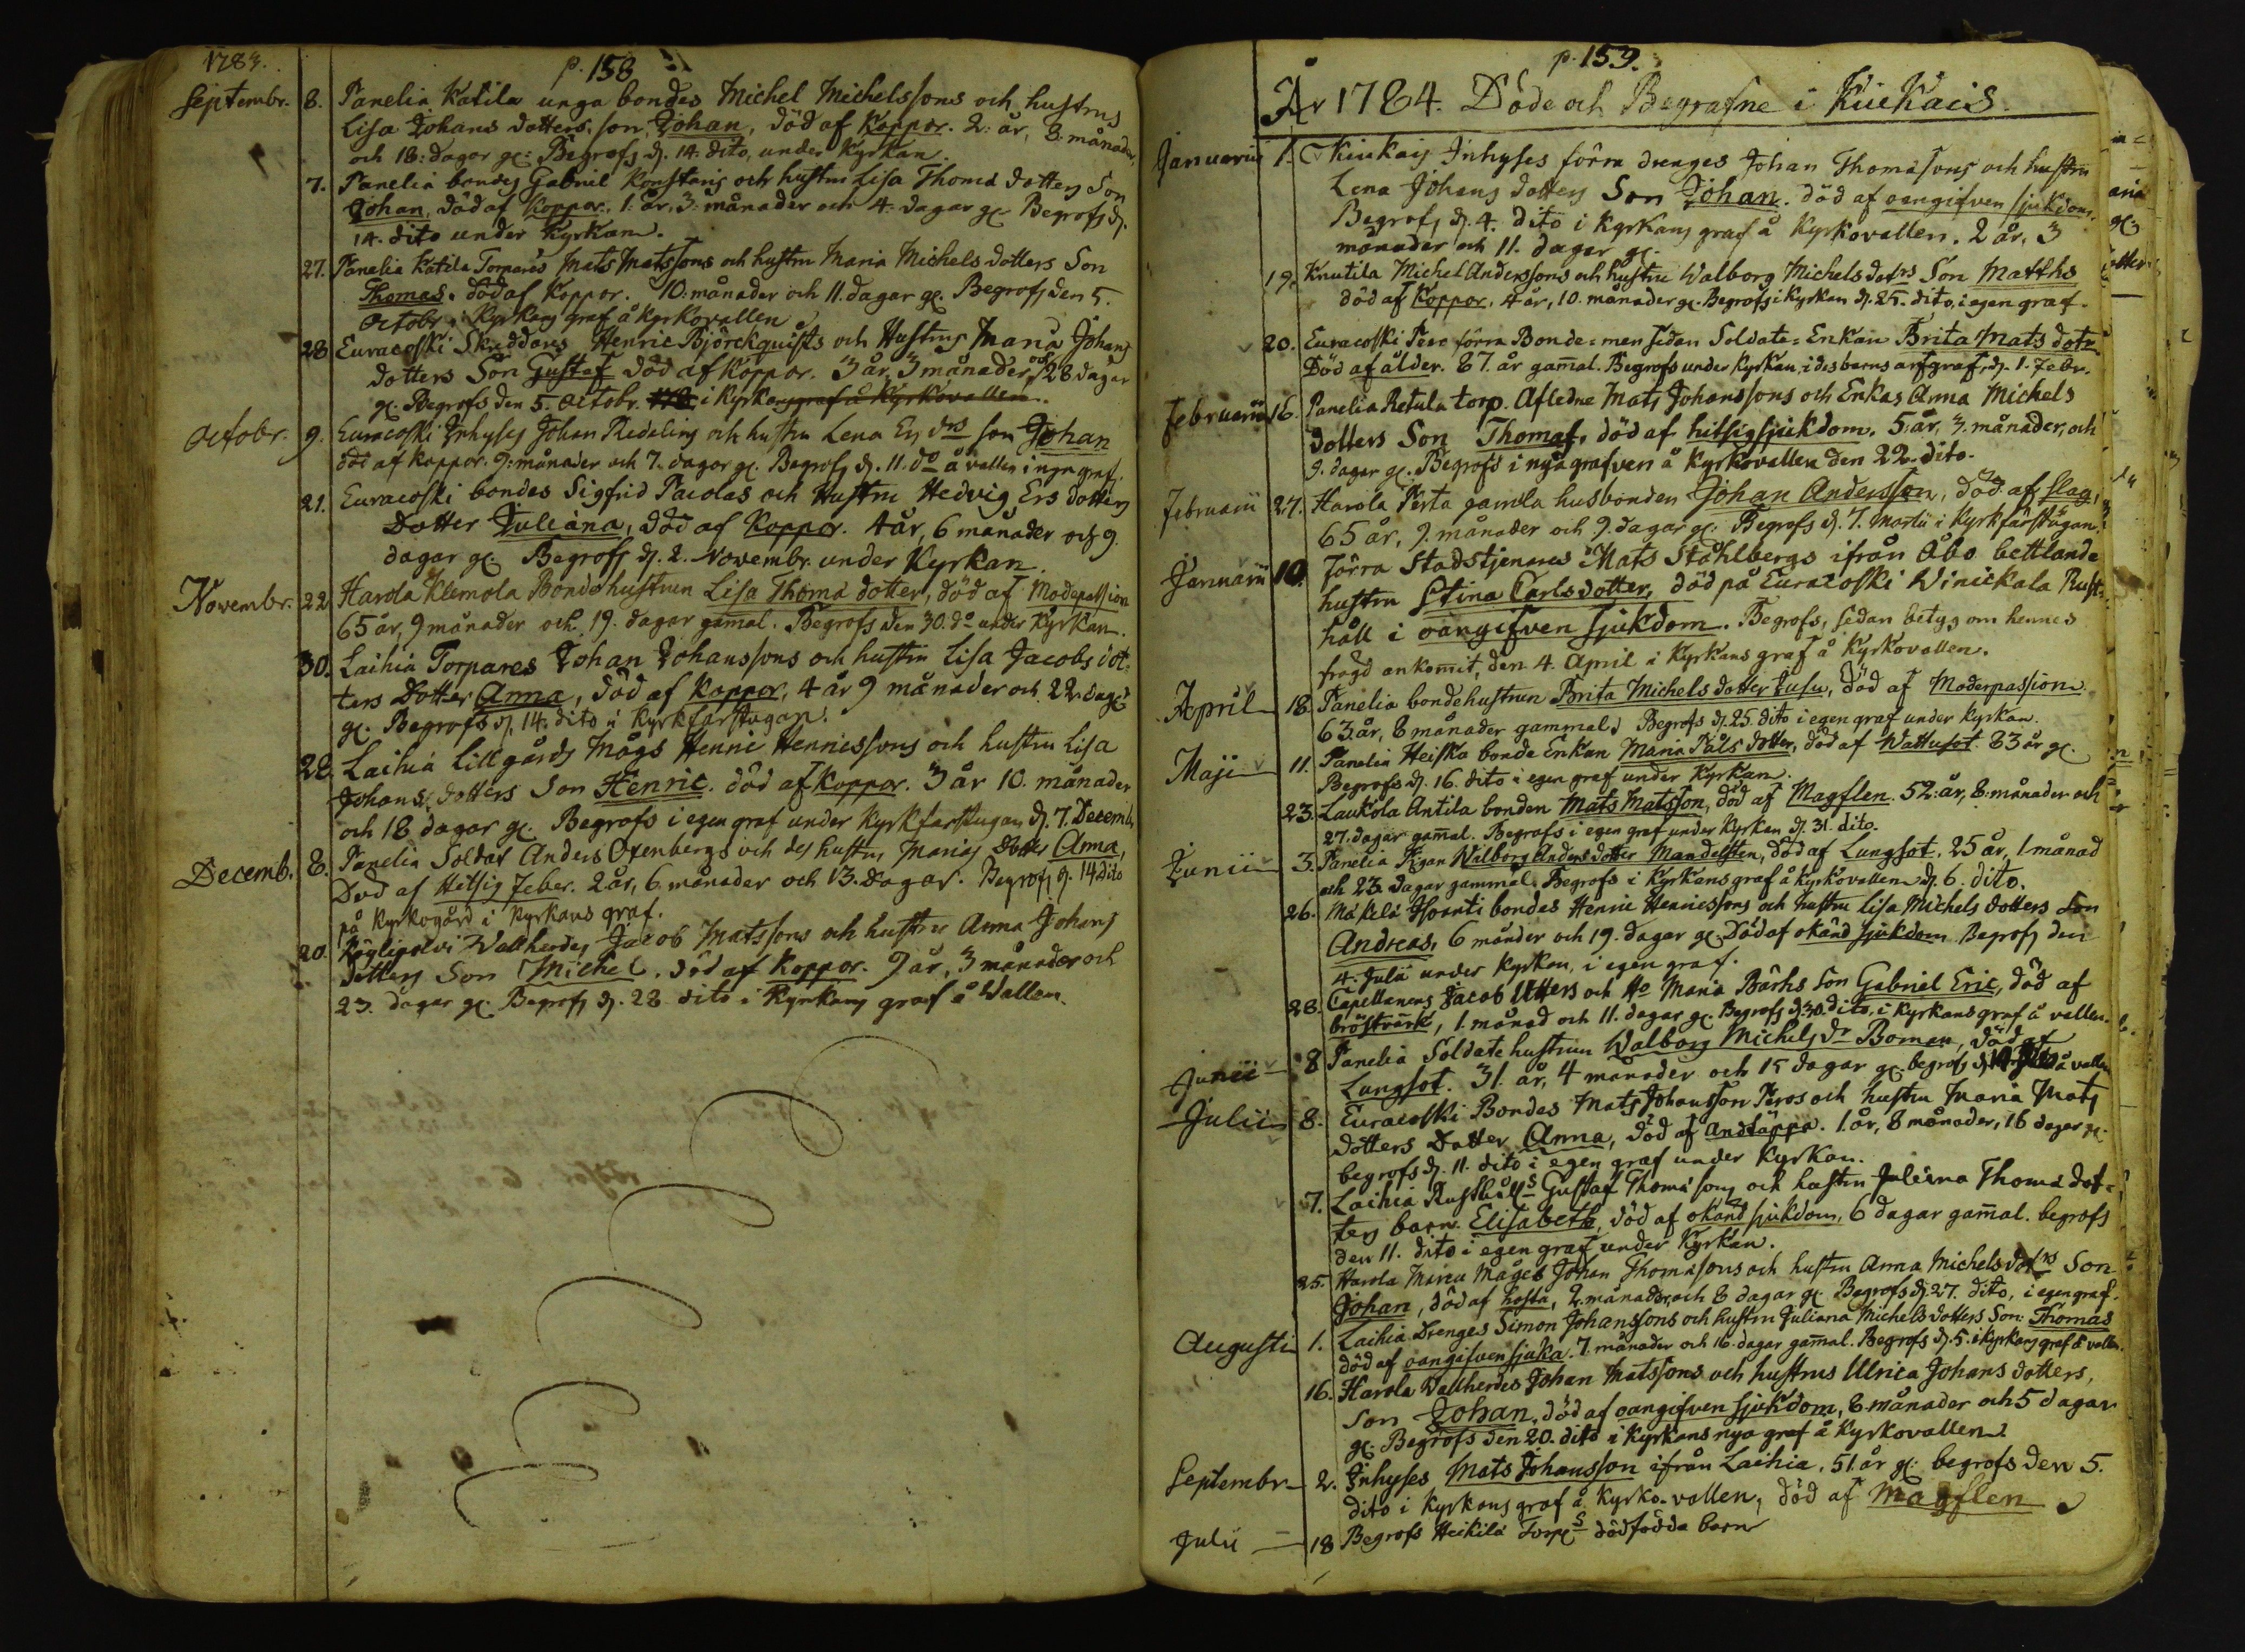 1783.
p. 158
Septembr. 8. Panelia Katila unga bondes Michel Michelssons och hustrus
Lisa Johans dotters, son, Johan, död af Koppor. 2: år, 8: månader,
och 18: dagar gl: Begrofs d. 14. dito, under Kyrkan.
7. Panelia bondes Gabriel Konstaris och hustru Lisa Thomä dotters Son
Johan, död af Koppor. 1: år, 3: månader och 4: dagar gl. Begrofs d.
14. dito under Kyrkan.
27. Panelia Katila Torpares Mats Matssons och hustru Maria Michels dotters Son
Thomas. död af Koppor. 10: månader och 11. dagar gl. Begrofs den 5.
Octobr. i Kyrkans graf å Kyrkovallen
28 Euracoski Skräddares Henric Björckquists och Hustrus Maria Johans
dotters Son Gustaf död af Koppor. 3 år, 3 månader och 28 dagar
gl. Begrofs den 5. Octobr. i Kyrkans graf å Kyrkovallen.
Octobr. 9. Euracoski Inhyses Johan Redeling och hustru Lena Er. drs son Johan
död af koppor. 9: månader och 7. dagar gl. Begrofs d. 11. do å vallen i nya graf.
21. Euracoski bondes Sigfrid Pacolas och Hustru Hedvig Ers dotters
Dotter Juliana, död af Koppor. 4 år, 6 månader och 9.
dagar gl. Begrofs d. 2. Novembr. under Kyrkan.
Novembr. 22 Harola Klemola Bondehustrun Lisa Thomä dotter, död af Moderpassion
65 år, 9 månader och 19. dagar gam̄al. Begrofs den 30. do under Kyrkan.
30. Laihia Torpares Johan Johanssons och hustru Lisa Jacobs dot-
ters Dotter Anna, död af Koppor, 4 år 9 månader och 22 dagar
gl. Begrofs d. 14. dito i Kyrkfarstugan.
28. Laihia Lillgårds Mågs Henric Henricssons och hustru Lisa
Johans dotters Son Henric. död af Koppor. 3 år 10. månader
och 18 dagar gl. Begrofs i egen graf under Kyrkfarstugan d. 7. Decemb.
Decemb. 8. Panelia Soldat Anders Oxenbergs och des hustru Marias Dotter Anna,
Död af Hitsig feber. 2 år, 6. månader och 13. dagar. Begrofs d. 14 dito
på Kyrkogård i Kyrkans graf.
20. Wallherdes Jacob Matssons och hustru Anna Johans
dotters Son Michel. död af Koppor. 9 år, 3 månader och
23. dagar gl. Begrofs d. 28. dito i Kyrkans graf å Wallen.
p. 159.
År 1784. Döde och Begrafne i Kiukais.
Januarii 1. Kiukais Inhyses förra drenges Johan Thomässons och hustru
Lena Johans dotters Son Johan. död af oangifven sjukdom.
Begrofs d. 4. dito i Kyrkans graf å Kyrkovallen. 2 år, 3
månader och 11. dagar gl.
19. Knutila Michel Anderssons och hustru Walborg Michels dotrs Son Matths
död af Koppor, 4 år, 10. månader gl. Begrofs i Kyrkan d. 25. dito, i egen graf.
20. Euracoski Pero förra Bonde= men sedan Soldate= Enkan Brita Mats dotr
Död af ålder. 87. år gam̄al. Begrofs under Kyrkan, i des barns arfgraf, d. 1. Febr.
Februarii 16. Panelia Retula torp. Afledne Mats Johanssons och Enkas Anna Michels
dotters Son Thomas, död af hitsig sjukdom. 5: år, 3. månader, och
9. dagar gl. Begrofs i nya grafven å Kyrkovallen den 22. dito.
Februarii 27. Harola Perta gamla husbonden Johan Andersson, död af slag,
65 år, 9. månader och 9. dagar gl. Begrofs d. 7. Martii i Kyrkfarstugan.
Januarii 10. Förra Stadstjenares Mats Ståhlbergs ifrån Åbo bettlande
hustru Stina Carlsdotter, död på Euracoski Winickala Rust-
håll i oangifven sjukdom. Begrofs, sedan betyg om hennes
fragd ankom̄it, den 4. April i Kyrkans graf å Kyrkovallen.
April 18. Panelia bondehustrun Brita Michels dotter Jusu, död af Moderpassion
63. år, 8 månader gammal, Begrofs d. 25. dito i egen graf under Kyrkan.
Maji 11. Panelia Heiska bonde Enkan Maria Påls dotter, död af Wattusot. 83 år gl.
Begrofs d. 16. dito i egen graf under Kyrkan.
23. Laukola Antila bonden Mats Matsson, död af Magflen. 52: år, 8. månader och
27. dagar gam̄al. Begrofs i egen graf under Kyrkan d. 31. dito.
Junii 3. Panelia Pigan Walborg Anders dotter Mandelsten, död af Lungsot. 25 år, 1 månad
och 23. dagar gammal. Begrofs i Kyrkans graf å Kyrkovallen d. 6. dito.
26. Mäkelä bondes Henric Henricssons och hustru Lisa Michels dotters Son
Andreas, 6 månder och 19. dagar gl. Död af okänd sjukdom Begrofs den
4. Julii under Kyrkan, i egen graf.
28. Capellanens Jacob Utters och Ho Maria Bärhs Son Gabriel Eric, död af
bröstvärk, 1. månad och 11. dagar gl. Begrofs d. 30. dito, i Kyrkans graf å vallen.
Junii 8 Panelia Soldatehustrun Walborg Michels dr Boman, död af
Lungsot. 31. år, 4 månader och 15 dagar gl. begrofs d. å vallen
Julii 8. Euracoski Bondes Mats Johansson Peros och hustru Maria Mats
dotters Dotter Anna, död af andtäppa. 1. år, 8 månader, 16 dagar gl.
begrofs d. 11. dito i egen graf under Kyrkan.
7. Laihia Rusthålls Gustaf Thomäsons och hustru Juliana Thomä dot-
ters barn. Elisabeth, död af okänd sjukdom, 6 dagar gam̄al. begrofs
den 11. dito i egen graf under Kyrkan.
25. Harola Mågs Johan Thomäsons och hustru Anna Michelsdotrs Son
Johan, död af hosta, 2. månader, och 8 dagar gl. Begrofs d. 27. dito, i egen graf.
Augusti 1. Laihia Drenges Simon Johanssons och hustru Juliana Michels dotters Son: Thomas
död af oangifven sjuka. 7. månader och 16. dagar gam̄al. Begrofs d. 5. i Kyrkans graf å vallen.
16. Harola Wallherdes Johan Matssons och hustrus Ulrica Johans dotters,
Son Johan, död af oangifven sjukdom, 8. månader och 5 dagar
gl. Begrofs den 20. dito i Kyrkans nya graf å Kyrkovallen.
Septembr. 2. Inhyses Mats Johansson ifrån Laihia. 51. år gl. begrofs den 5.
dito i Kyrkans graf å Kyrko-vallen, död af Magflen
Julii 18 Begrofs Heikilä Torps dödfödda barn